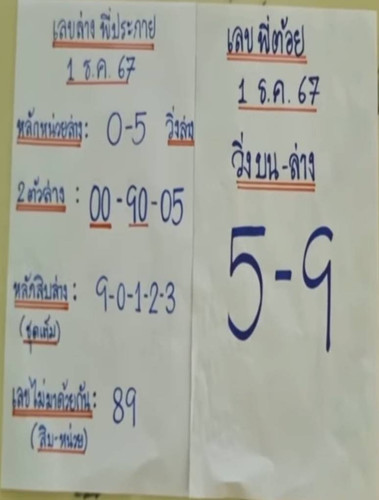 เลขล่าง พี่ประกาย
1 ธ.ค. 67
หลักหน่วยล่าง: 0-5 วิ่งล่าง
2ตัวล่าง : 00-90-05
หลักสิบล่าง: 9-0-1-2-3
(ชุดเต็ม)
เลขไม่มาด้วยกัน: 89
(สิบ-หน่วย)
เลขพี่ต้อย
1 ธ.ค. 67
วิ่งบน-ล่าง
5-9